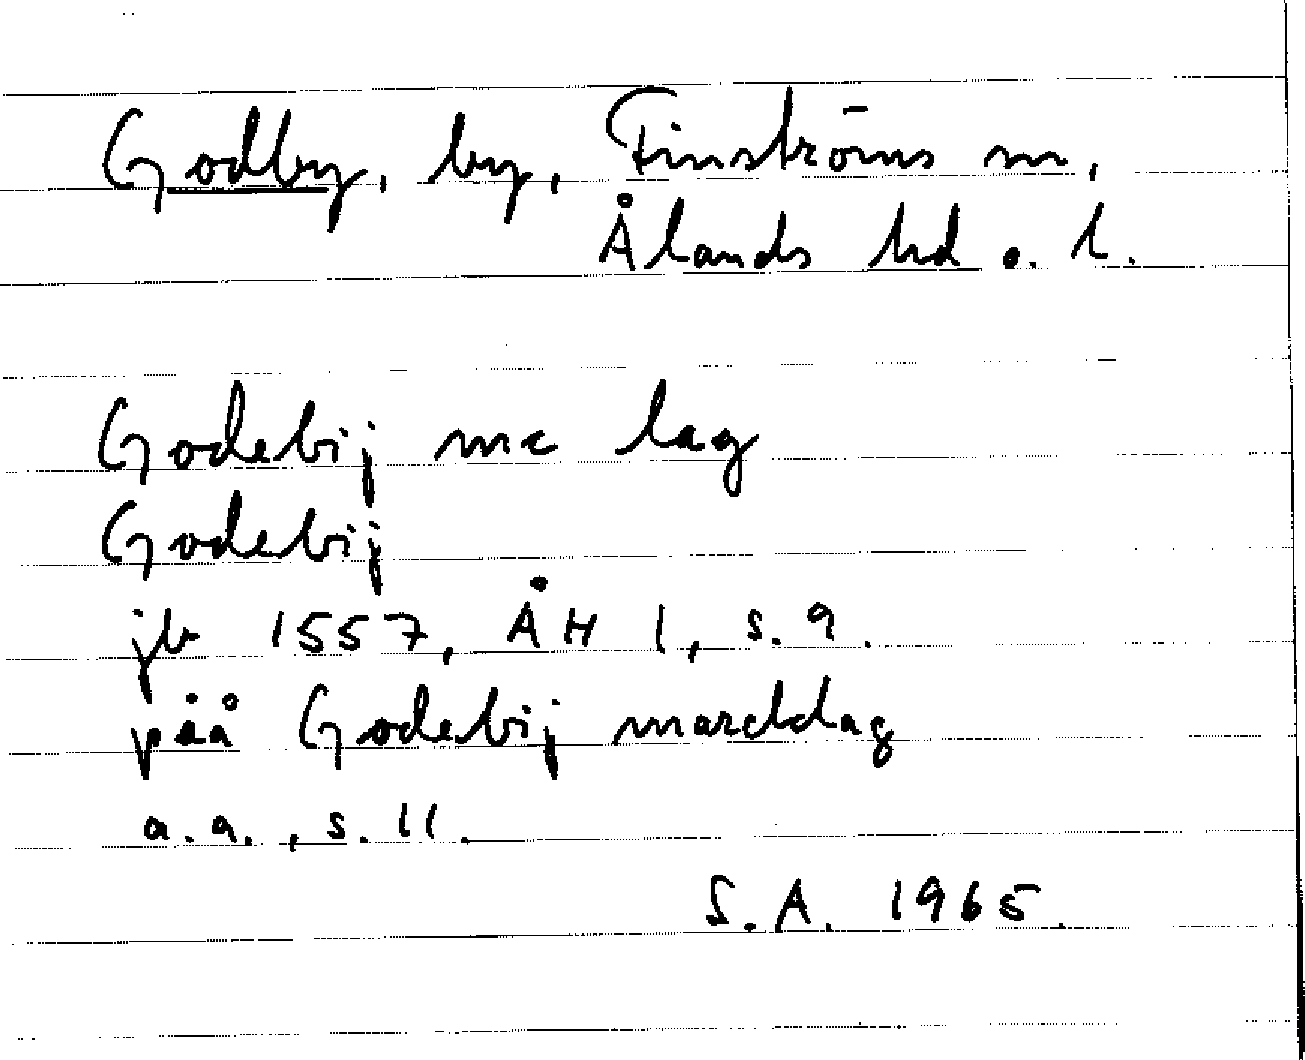 Godby, by, Finströms sn,
Ålands hd o. l.
Godebij mc lag
Godebij
jb 1557, ÅH 1, s. 9.
påå Godebij marcklag
a.a., s. 11.
S.A. 1965.